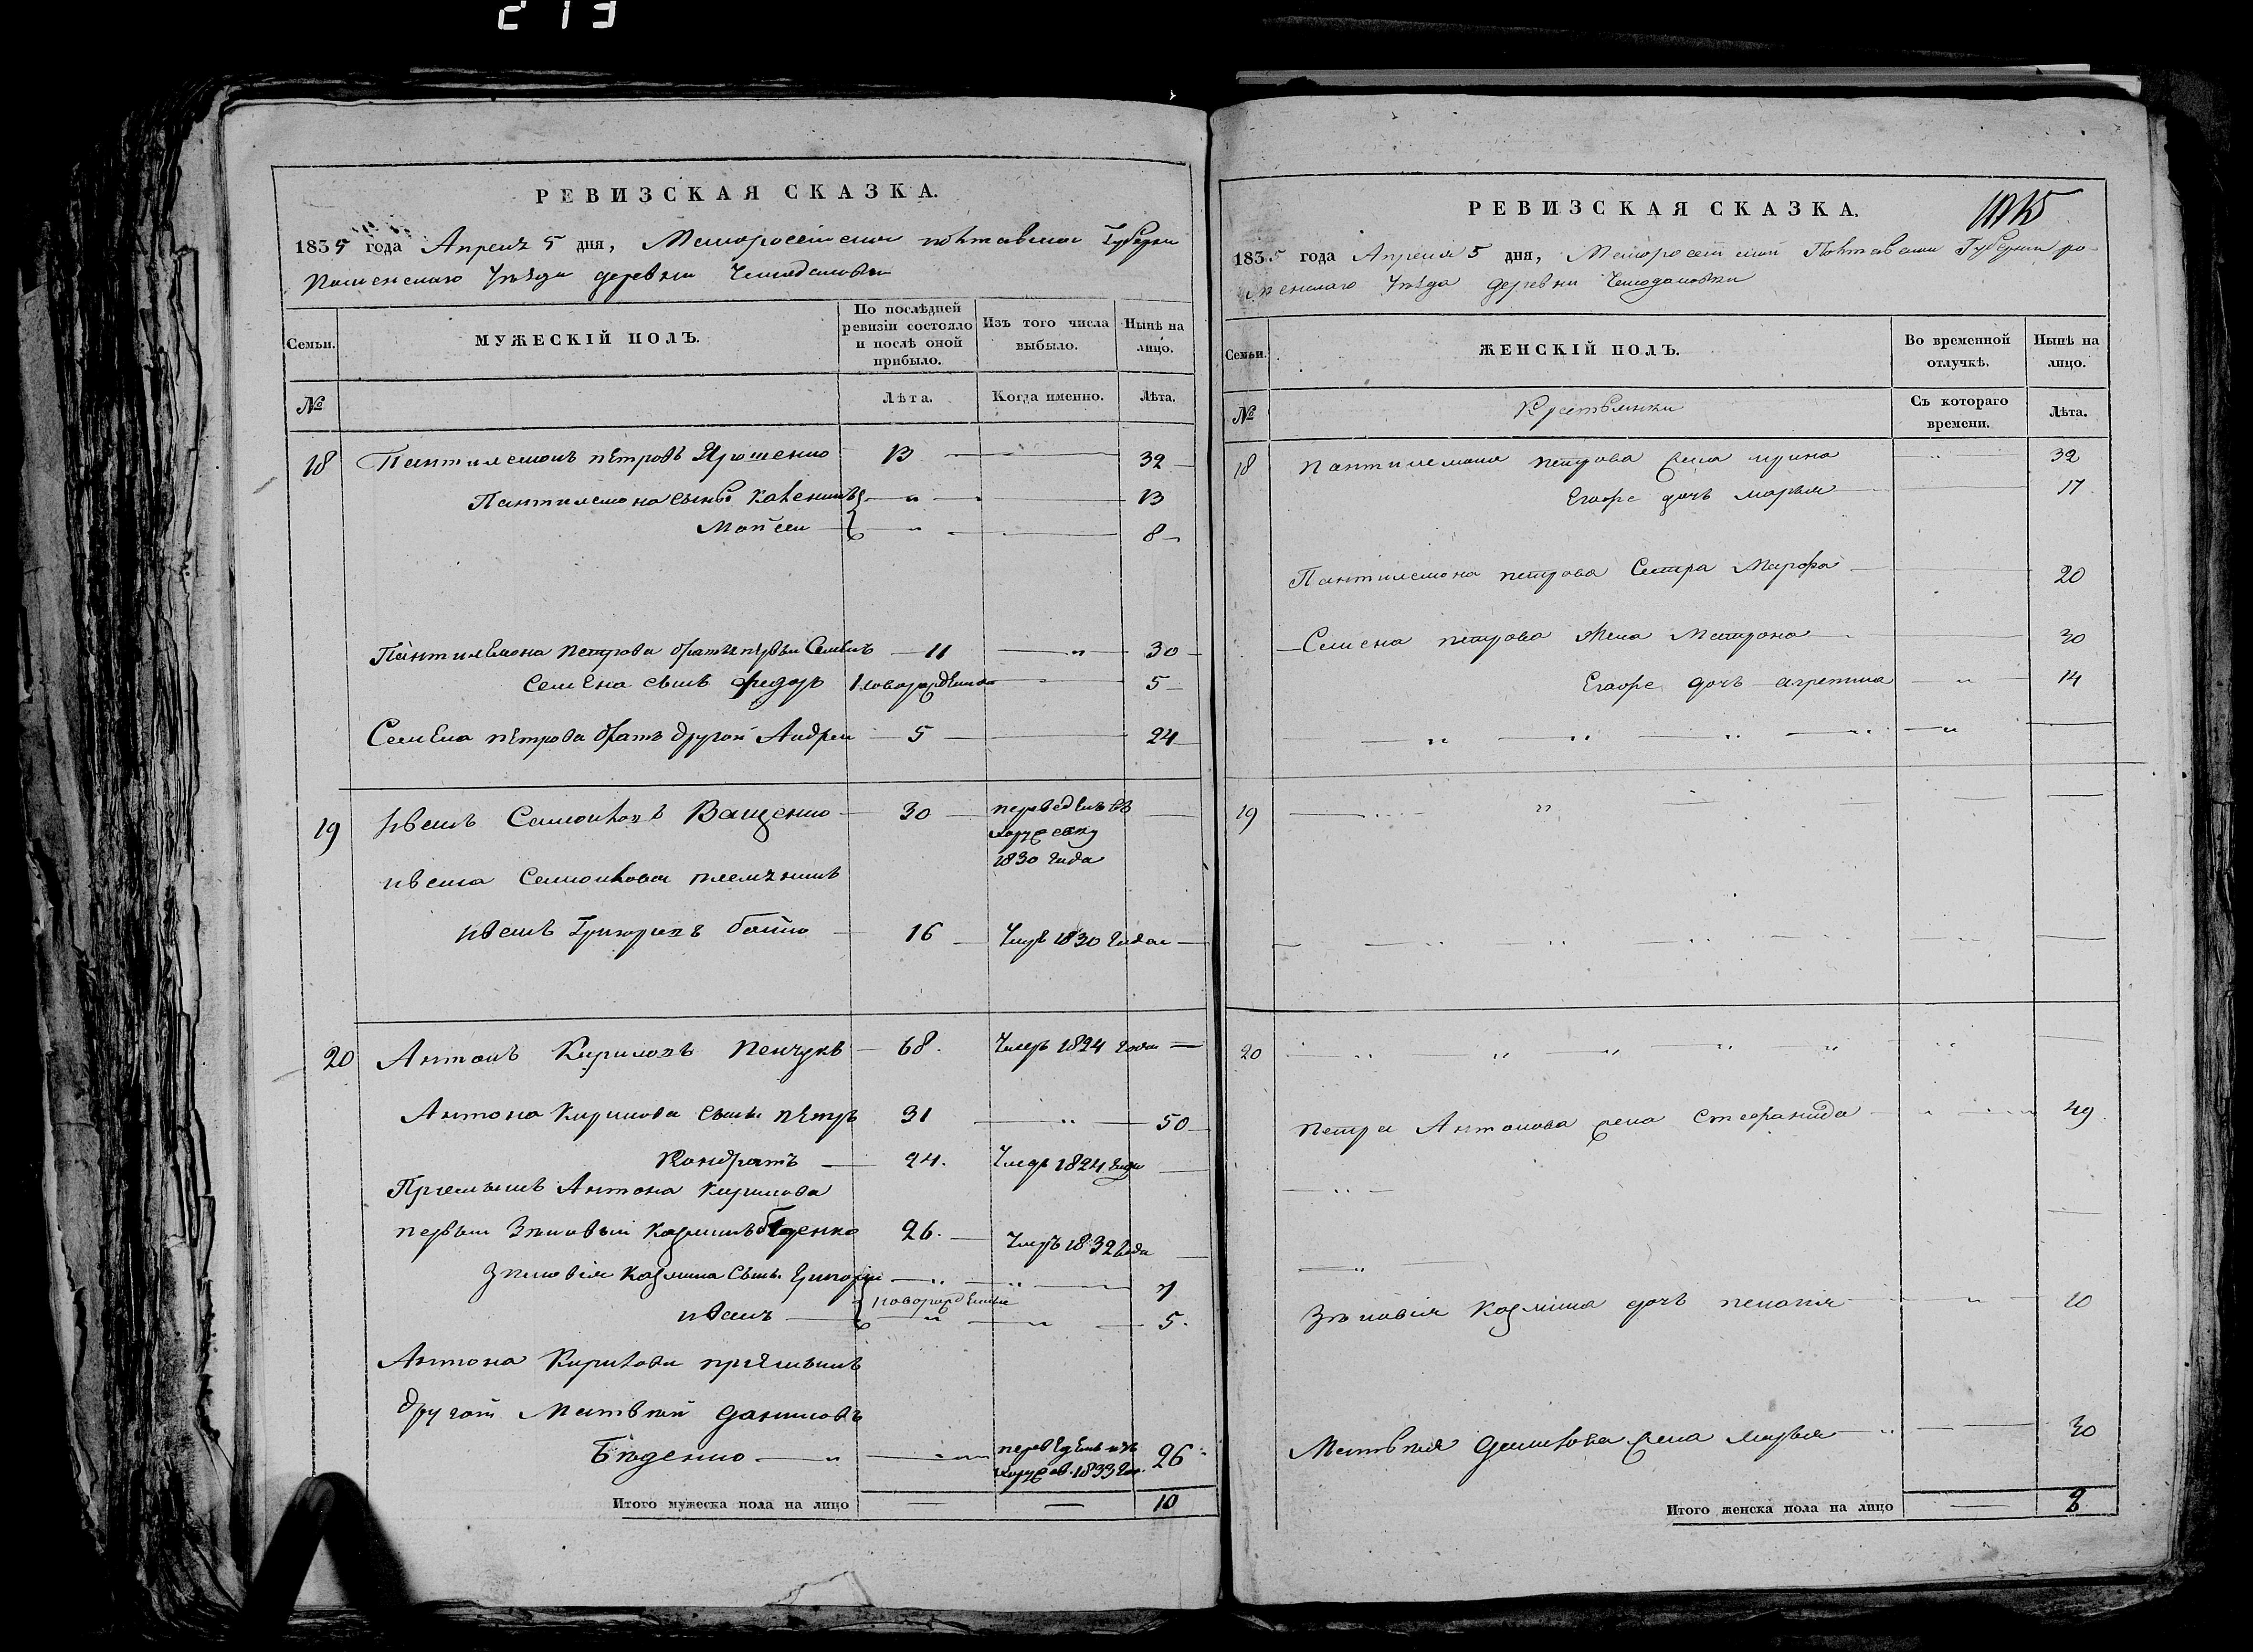 213
РЕВИЗСКАЯ СКАЗКА.
1835 года Апреля 5 дня, Малоросейской полтавской Губерни
Роменскаго Уѣзда деревни Чемодановки
Семьи.
МУЖЕСКІЙ ПОЛЪ.
По послѣдней ревизіи состояло и послѣ оной прибыло.
Изъ того числа выбыло.
Нынѣ на лицо.
№
Лѣта.
Когда именно.
Лѣта.
18 Пантилемонъ петровъ Ярошенко 13 32
Пантилемона сынъ „ 13
Моисей „ 8
Пантилемона Петрова братъ первы Семенъ 11 „ 30
Семена сынъ федоръ новорожденой 5
Семена петрова братъ другой Андрей 5 24
19 Иванъ Самойловъ Ващенко 30 переведенъ въ
1830 года
ивана Самойлова племяникъ
иванъ Григориевъ 16 Умре 1830 года
20 Антонъ Кириловъ Пенчукъ 68. Умеръ 1824 года
Антона Кирилова сынъ петръ 31 „ 50
Кондратъ 24. Умеръ 1824 года
Приемышъ Антона Кирилова
первый Зѣновий Козминъ Беденко 26. Умръ 1832 года
Зѣновія Козмина сынъ Григорій „ „ 7
новорожденые
иванъ „ „ 5.
Антона Кирилова приемышъ
другой Матвѣй Даниловъ
Бѣденко „ переведенъ изъ 26
1833 го.
Итого мужеска пола на лицо 10
РЕВИЗСКАЯ СКАЗКА.
1835 года Апреля 5 дня, Малоросейской Полтавской Губернии ро-
менскаго Уѣзда деревни Чемодановки
Семьи.
ЖЕНСКІЙ ПОЛЪ.
Во временной отлучкѣ.
Нынѣ на лицо.
№
Крестьянки
Съ котораго времени.
Лѣта.
18 Пантилемона петрова жена ирина „ 32
Егоже дочь марья 17
Пантилемона петрова Сестра Марфа 20
Семена петрова жена Матрона 30
Егоже дочь агрепина „ 14
„ „ „ „ „
19 „
„ „ „ „ „
20 „ „ „ „ „ „
Петра Антонова жена Стефанида „ „ 49
„
„
Зѣновія Козмина дочь пелагия „ 10
Матвѣя Данилова жена марья „ 30
Итого женска пола на лицо 8